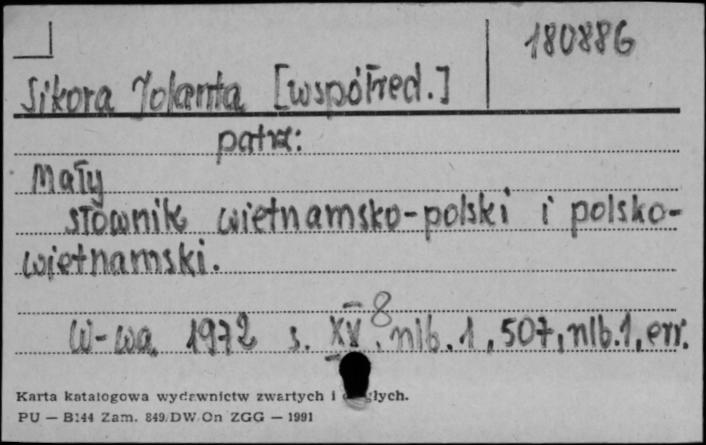 180886
Sikora Jolanta [współred.]
patrz:
Mały
słownik wietnamsko-polski i polsko-
wietnamski.
8
W-wa 1972 s. XV, nlb. 1, 507, nlb. 1, err.
Karta katalogowa wydawnictw zwartych i
PU — B144 Zam. 849/DW/On ZGG — 1991